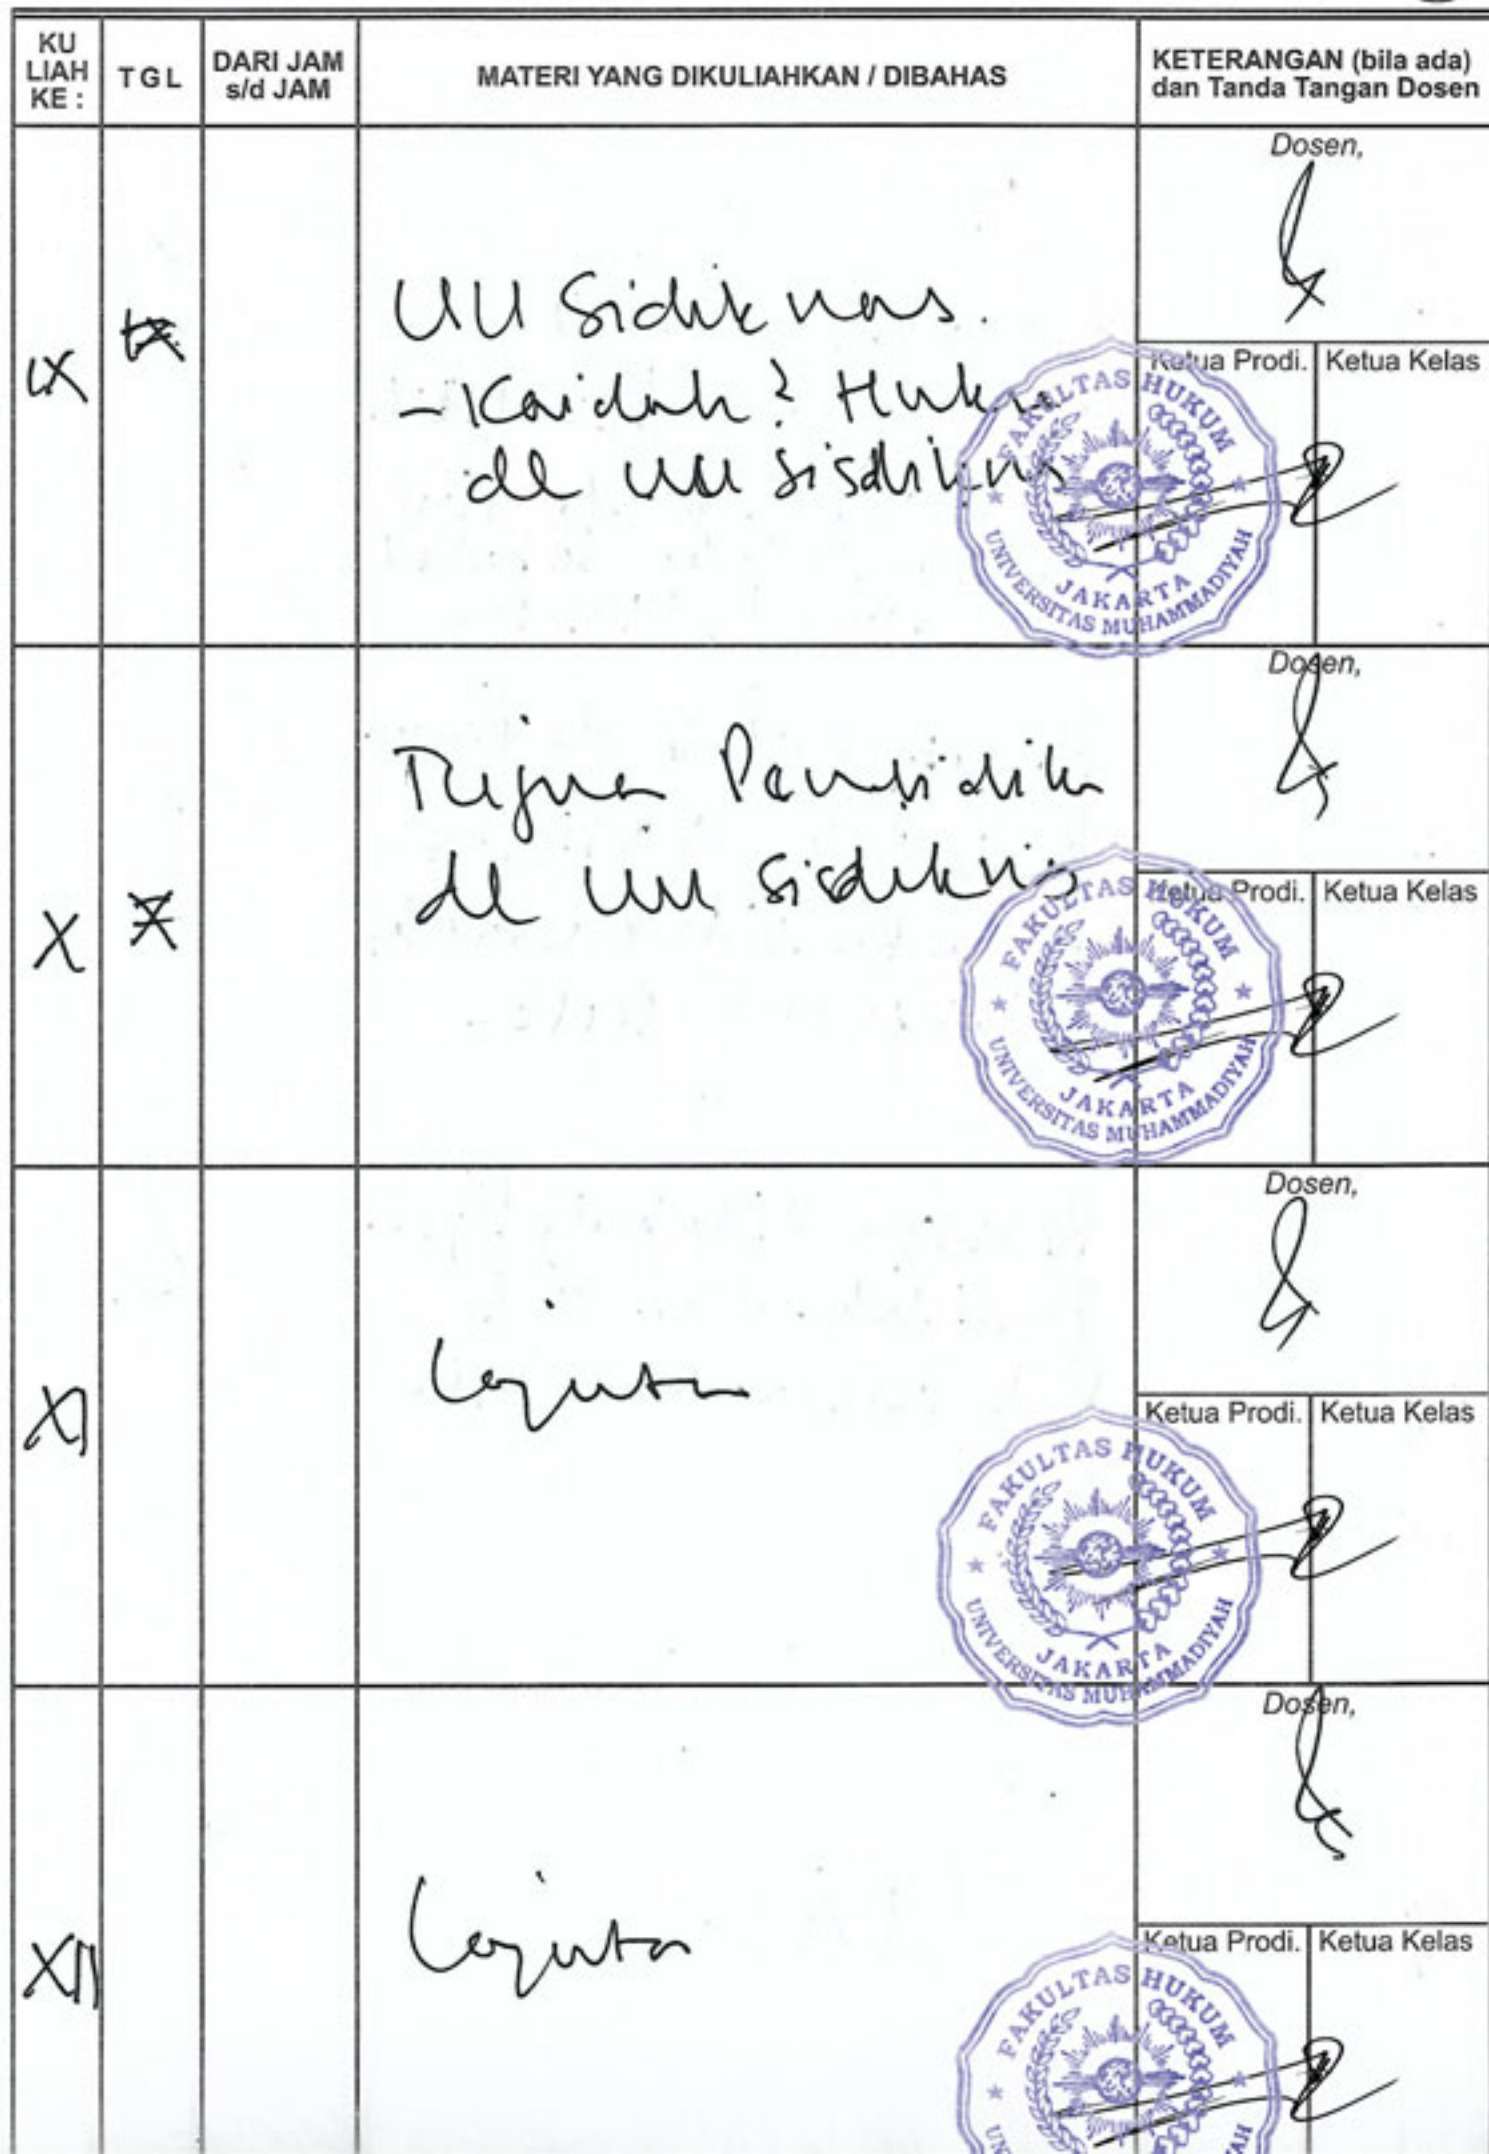 KU LIAH KE :
TGL
DARI JAM s/d JAM
MATERI YANG DIKULIAHKAN / DIBAHAS
KETERANGAN (bila ada)
dan Tanda Tangan Dosen
IX
IX
UU Sidiknas.
- Kaidah² Hukum
dl UU Sisdiknas
Dosen,
Ketua Prodi.
Ketua Kelas
FAKULTAS HUKUM
UNIVERSITAS MUHAMMADIYAH
JAKARTA
X
X
Tujuan Pendidikan
dl UU Sisdiknas
Dosen,
Ketua Prodi.
Ketua Kelas
FAKULTAS HUKUM
UNIVERSITAS MUHAMMADIYAH
JAKARTA
XI
Lanjutan
Dosen,
Ketua Prodi.
Ketua Kelas
FAKULTAS HUKUM
UNIVERSITAS MUHAMMADIYAH
JAKARTA
XII
Lanjutan
Dosen,
Ketua Prodi.
Ketua Kelas
FAKULTAS HUKUM